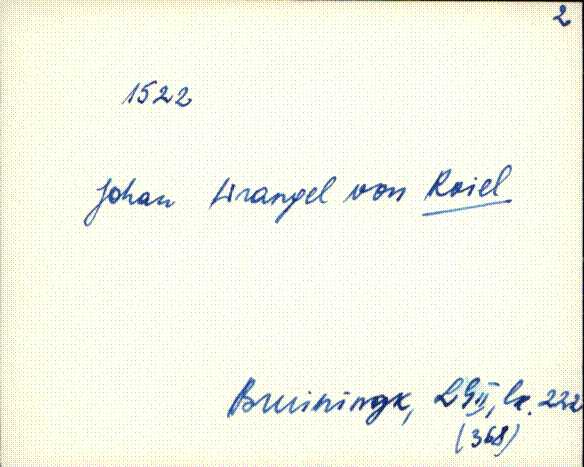 2
1522
Johan Wrangel von Roiel
Bruiningk, LG II, lk. 222
(368)